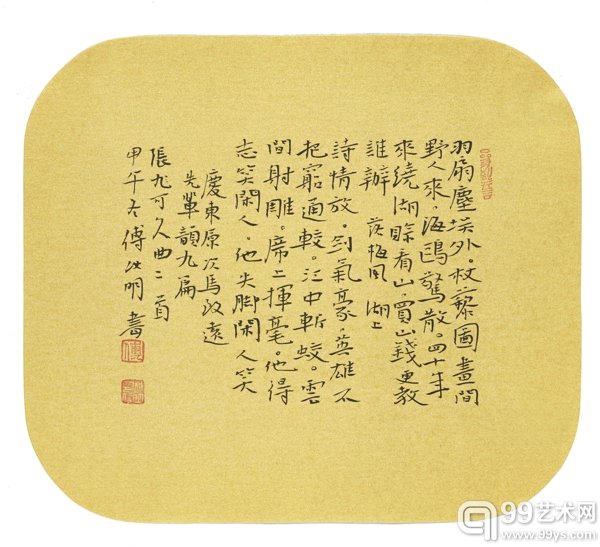 羽扇塵埃外。杖藜圖畫間
野人來。海鷗驚散。四十年
來繞湖賒看山。買山錢更教
誰辦 落梅風 湖上
詩情放。劍氣豪。英雄不
把窮通較。江中斬蛟。雲
間射雕。席上揮毫。他得
志笑閑人。他失脚閑人笑
慶東原次馬致遠
先輩韻九篇
張九可久曲二首
甲午冬傅明書
99艺术网
www.99ys.com